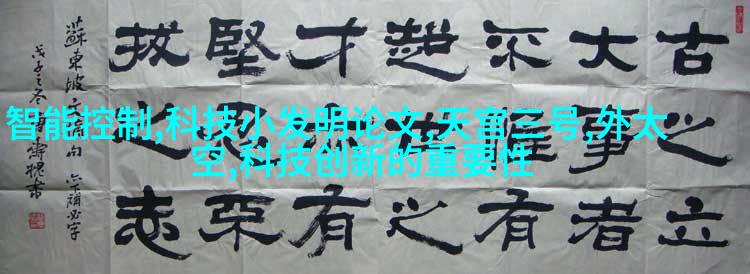 古之立
大事者
不惟有
超世之
才亦有
堅忍不
拔之志
蘇東坡文摘句 亦下漏必字
戊子之冬
智能控制,科技小发明论文,天宫二号,外太
空,科技创新的重要性